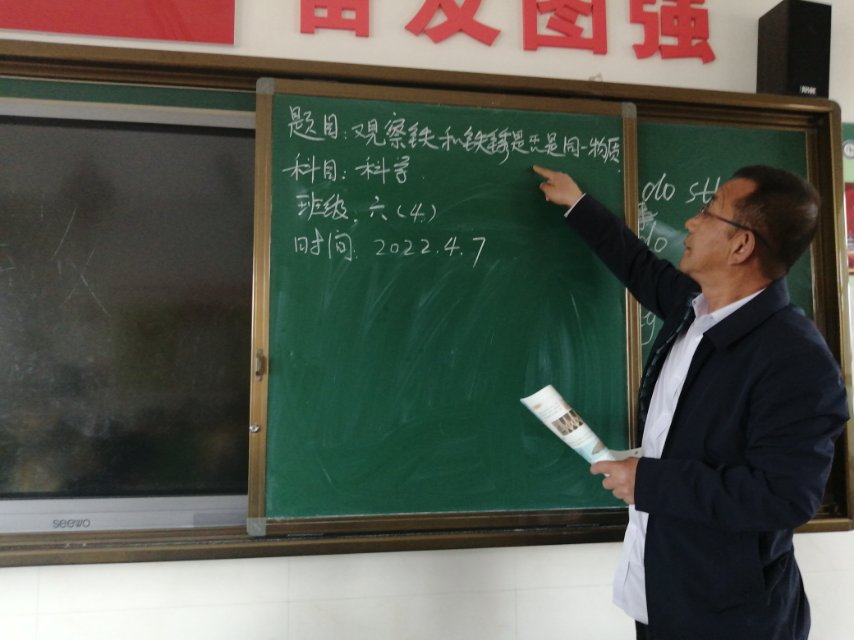 奋发图强
题目:观察铁和铁锈是否是同一物质
科目:科学
班级:六(4)
时间:2022.4.7
do sth
do
seewo